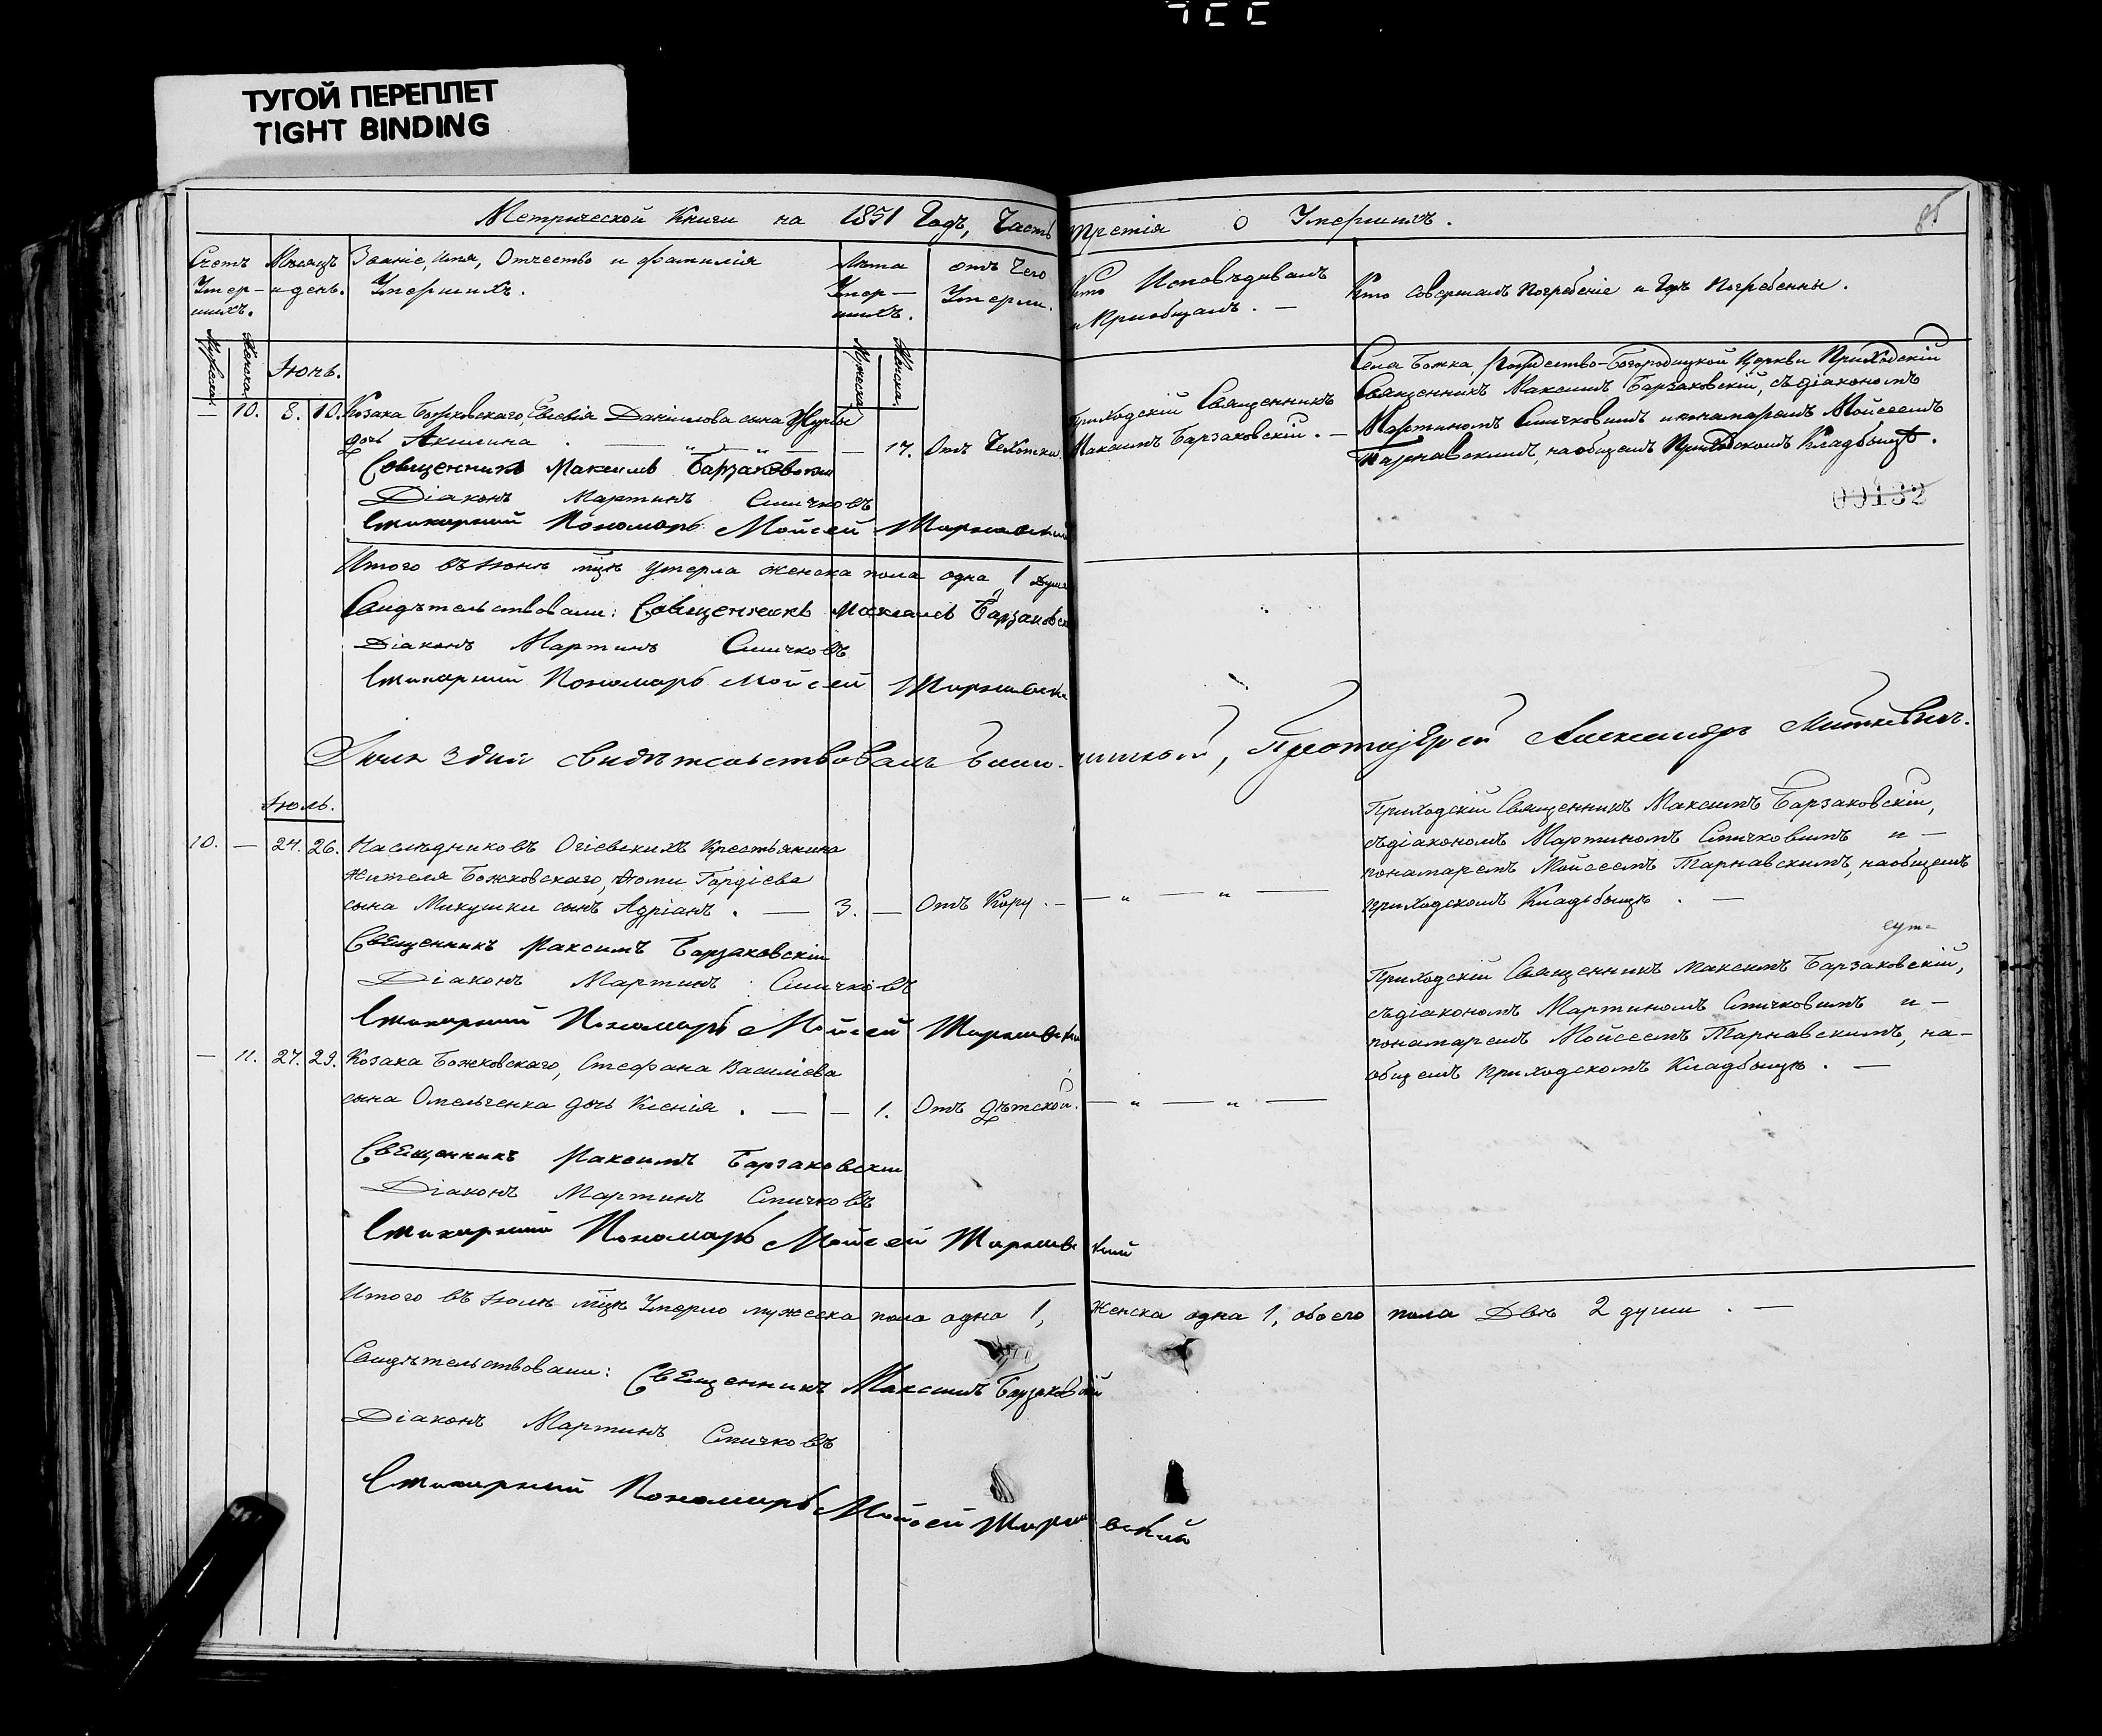 ТУГОЙ ПЕРЕПЛЕТ
TIGHT BINDING
Метрической Книги на 1851 Годъ, Часть третія о Умершихъ.
85
Счетъ Умер-шихъ.
Мужеска.
Женска.
Мѣсяцъ и день.
Званіе, имя, Отчество и фамилія Умершихъ.
Лѣта Умер-шихъ.
Мужеска.
Женска.
отъ Чего Умерли.
Кто Исповѣдывалъ и Пріобщалъ. —
Кто совершалъ Погребеніе и Гдѣ Погребенны.
Іюнь.
— 10. 8. 10. Козака Божковскаго, Евсевія Даніилова сына Журбы
дочь Акилина . — „ — „ — — 17. Отъ Чахотки.
Приходскій Священникъ
Максимъ Барзаковскій. —
Села Божка, Рождество-Богородицкой Церкви Приходскій
Священникъ Максимъ Барзаковскій, съ діакономъ
Мартиномъ Спичковимъ и понамаремъ Мойсеемъ
Тарнавскимъ, на общемъ Приходскомъ Кладбыщѣ.
00132
Священникъ Максимъ Барзаковскій
Діаконъ Мартинъ Спичковъ
Стихарний Пономарь Мойсей Тарнавский
Итого въ Іюнѣ мцѣ умерла женска пола одна 1 душа
Свидѣтельствовали: Священникъ Максимъ Барзаковск
Діаконъ Мартинъ Спичковъ
Стихарний Пономарь Мойсей Тарнавски
Іюля 3 дня свидѣтельствовалъ Протоіерей Александръ Миткевичъ.
Іюль.
10. — 24. 26. Наслѣдниковъ Огіевскихъ Крестьянина
жителя Божковскаго, Ѳомы Гордіева
сына Микушки сынъ Адріанъ . — 3. — Отъ Кору. — — „ — „ —
Приходскій Священникъ Максимъ Барзаковскій,
съ діакономъ Мартиномъ Спичковимъ и —
понамаремъ Мойсеемъ Тарнавскимъ, на общемъ
приходскомъ Кладьбыщѣ . —
Священникъ Максимъ Барзаковскій
Діаконъ Мартинъ Спичковъ
Стихарний Пономарь Мойсей Тарнавский
— 11. 27. 29. Козака Божковскаго, Стефана Василіева
сына Омельченка дочь Ксенія . — — 1. Отъ дѣтской. — „ — „ —
Приходскій Священникъ Максимъ Барзаковскій,
съ діакономъ Мартиномъ Спичковимъ и —
понамаремъ Мойсеемъ Тарнавскимъ, на-
общемъ приходскомъ Кладбыщѣ . —
Священникъ Максимъ Барзаковскій
Діаконъ Мартинъ Спичковъ
Стихарний Пономарь Мойсей Тарнавский
Итого въ Іюлѣ мцѣ Умерло мужеска пола одна 1, женска одна 1, обоего пола Двѣ 2 души . —
Свидѣтельствовали: Священникъ Максимъ Барзаковскій
Діаконъ Мартинъ Спичковъ
Стихарний Пономарь Мойсей Тарнавский